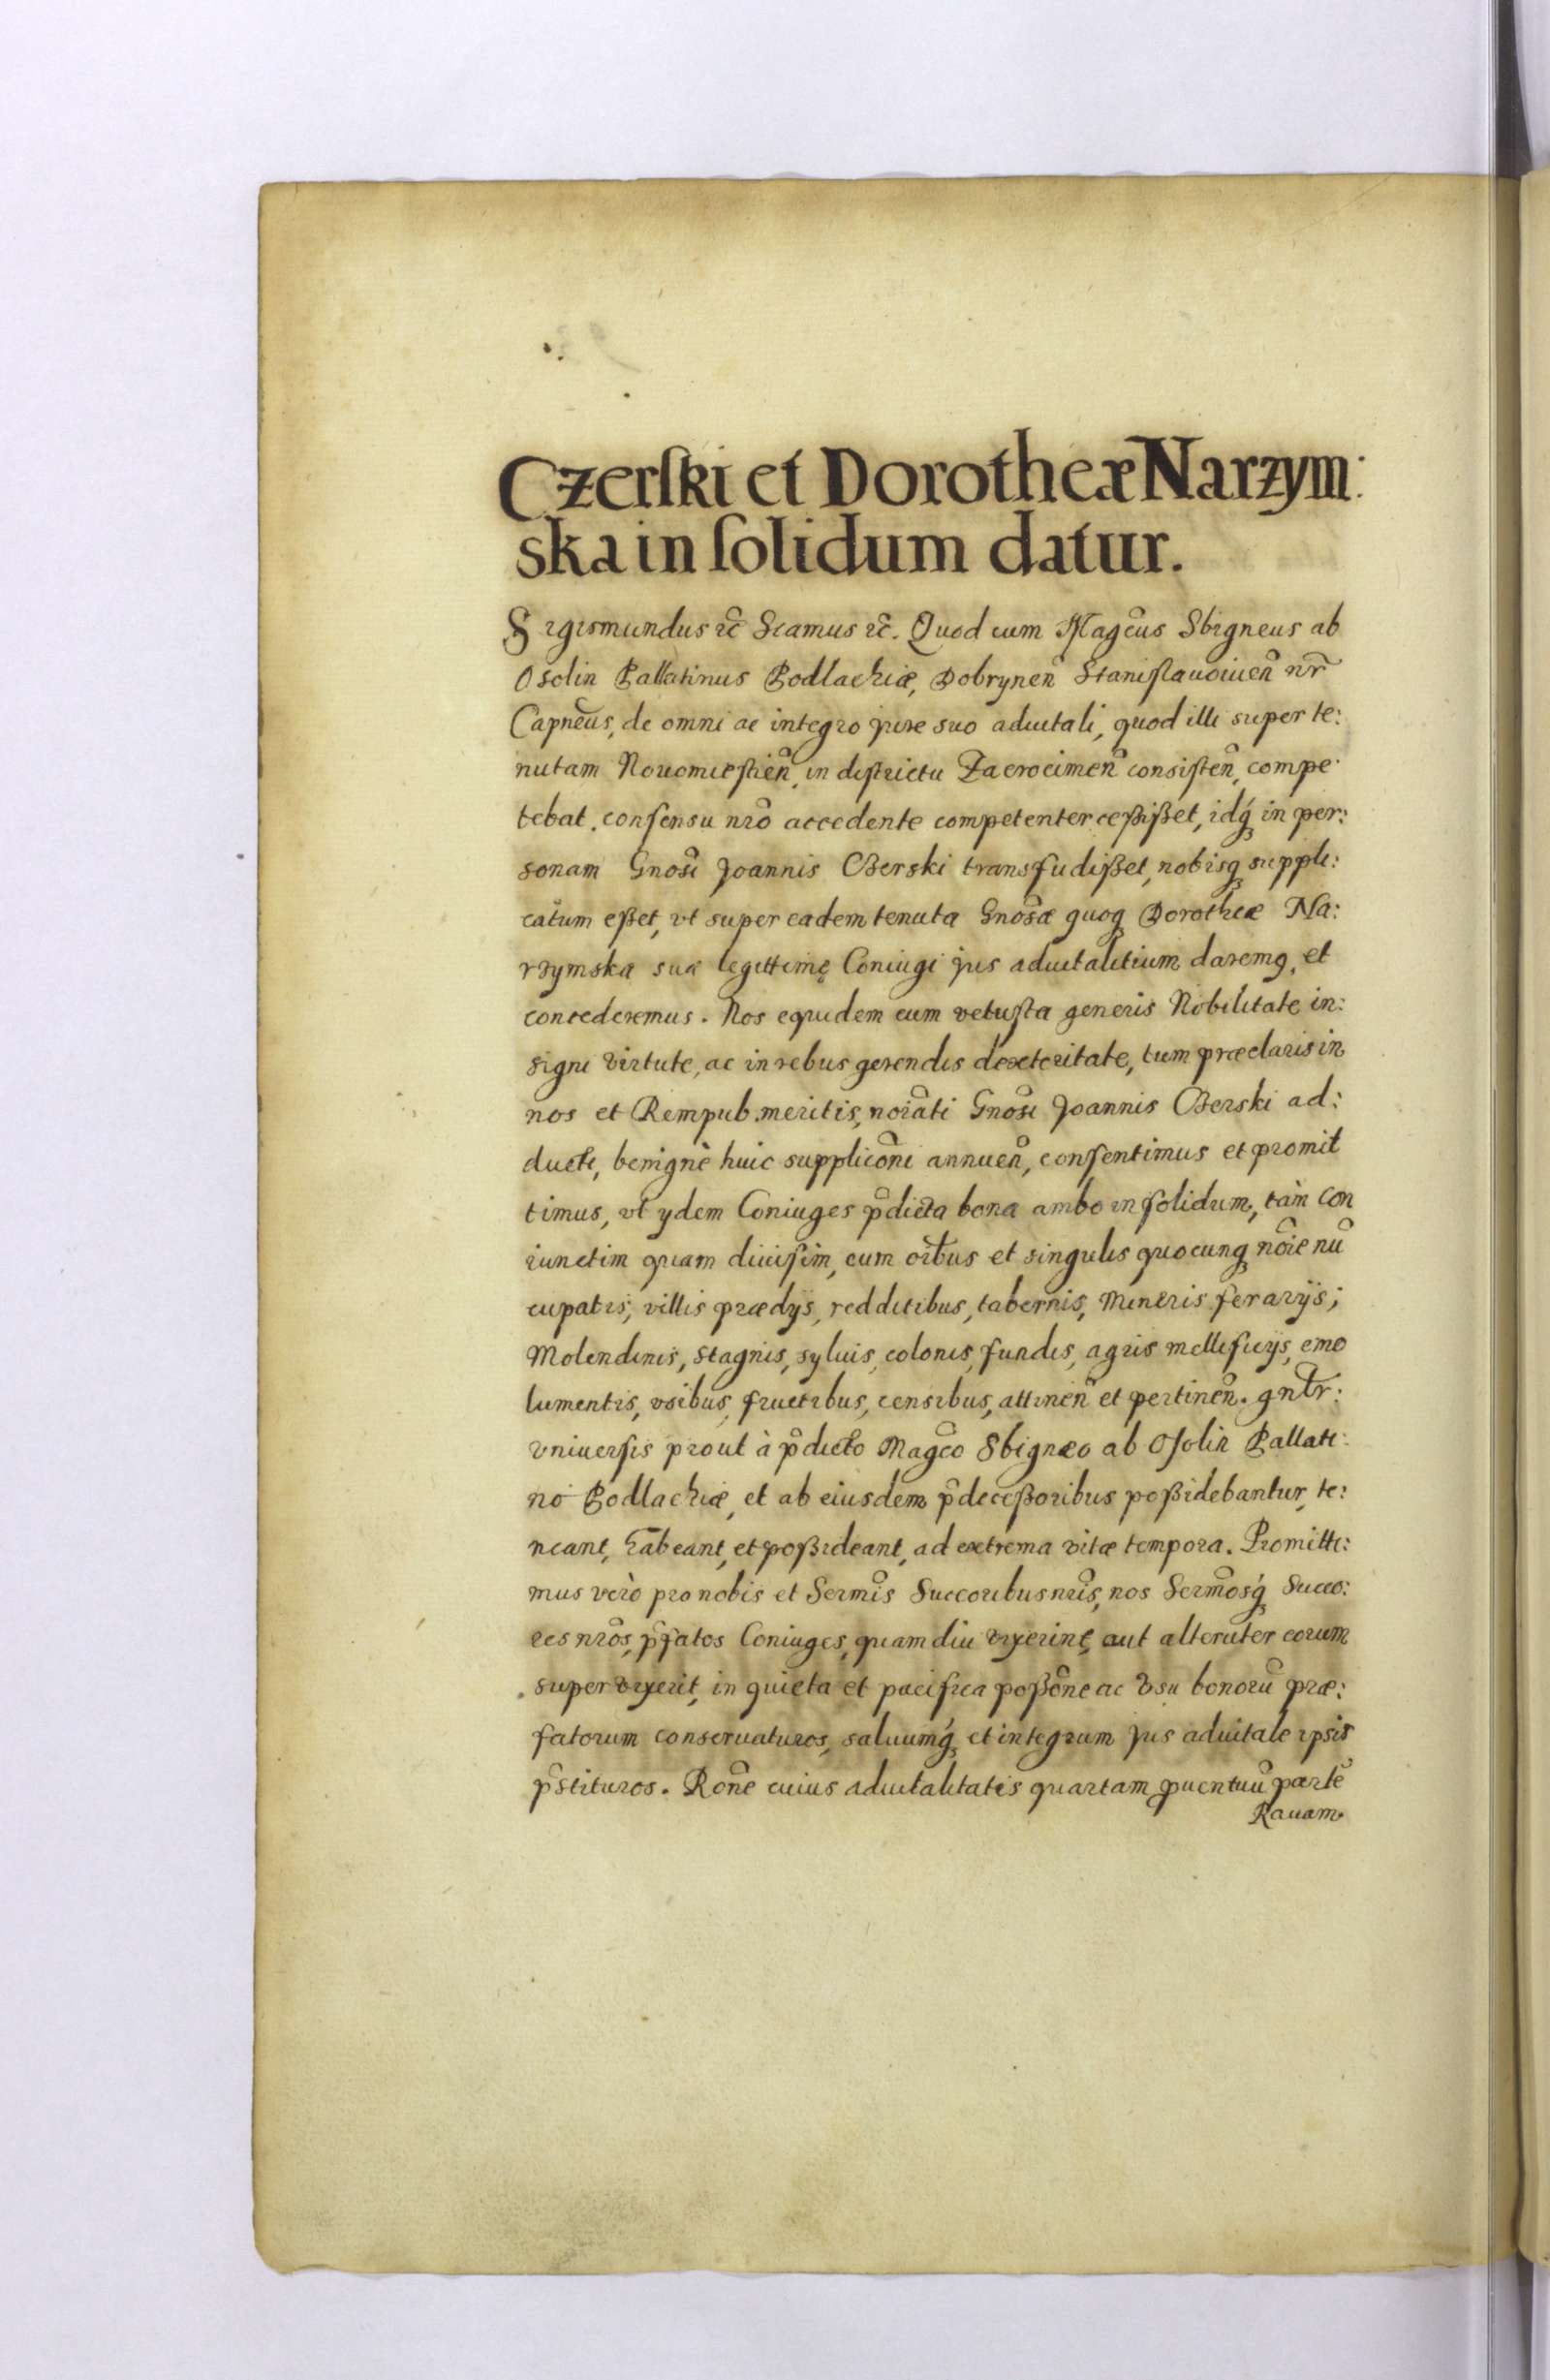 Czerſki et Dorotheæ Narzym:
ska in ſolidum datur.
Sigismundus ꝛc̃ Sciamus ꝛc̃. Quod cum Magc̃us Sbigneus ab
Osolin Pallatinus Podlachiæ, Dobrynen̄ Staniſlauoiuen̄ nr̄
Capnēus, de omni ac integro jure suo aduitali, quod illi super te:
nutam Nouomieſtien̄, in diſtrictu Zacrocimen̄ consiſten̄, compe:
tebat. conſensu nr̃o accedente competenter ceßißet, idq́ꝫ in per:
sonam Gnosi Joannis Czerski transfudißet, nobisqꝫ suppli:
catum eßet, vt super eadem tenuta Gnosæ quoqꝫ Dorotheæ Na:
rzymska suæ legittimę Coniugi jus aduitalitium daremꝯ, et
concederemus. Nos equidem cum vetuſta generis Nobilitate in:
signi virtute, ac in rebus gerendis dexteritate, tum præclaris in
nos et Rempub. meritis, noiãti Gnosi Joannis Czerski ad:
ducti, benignè huic supplicõni annuen̄, conſentimus et promit
timus, vt ydem Coniuges p̃dicta bona ambo in ſolidum, tàm con
iunctim quam diuiſim, cum oĩbus et singulis quocunqꝫ nõie nũ
cupatis, villis prædys, redditibus, tabernis, Mineris ferarÿs;
Molendinis, stagnis, syluis, colonis, fundis, agris mellificÿs, emo
lumentis, vsibus, fructibus, censibus, attinen̄ et pertinen̄. gnr̃:
vniuerſis prout à p̃dicto Magc̃o Sbignæo ab Oſolin Pallati:
no Podlachiæ, et ab eiusdem p̃deceßoribus poßidebantur, te:
neant, habeant, et poßideant, ad extrema vitæ tempora. Promitti:
mus verò pro nobis et Sermĩs Succoribus nris̃, nos Sermõsq́ꝫ Succo:
res nrõs, p̃fatos Coniuges, quam diu vixerint, aut alteruter eorum
superuixerit, in quieta et pacifica poßõne ac vsu bonorũ præ:
fatorum conseruaturos, saluumq́ꝫ et integrum jus aduitale ipsis
p̃stituros. Rõne cuius aduitalitatis quartam ꝓuentuũ partẽ
Rauam